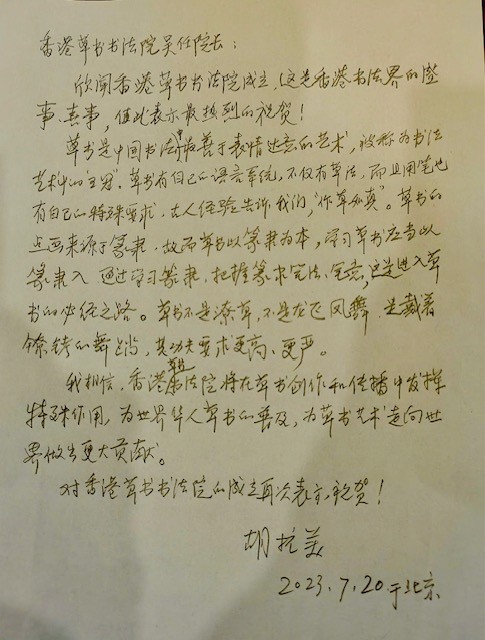 香港草书书法院吴任院长：
欣闻香港草书书法院成立，这是香港书法界的盛
事、喜事，值此表示最热烈的祝贺！
草书是中国书法中最善于表情达意的艺术，被称为书法
艺术中的“王冠”。草书有自己的语言系统，不仅有草法，而且用笔也
有自己的特殊要求，古人经验告诉我们，“作草如真”。草书的
点画来源于篆隶，故而草书以篆隶为本，学习草书应当以
篆隶入，通过学习篆隶，把握篆隶笔法、笔意，这是进入草
书的必经之路。草书不是潦草，不是龙飞凤舞，是戴着
镣铐的舞蹈，其功夫要求更高、更严。
我相信，香港草书书法院将在草书创作和传播中发挥
特殊作用，为世界华人草书的普及，为草书艺术走向世
界做出更大贡献。
对香港草书书法院的成立再次表示祝贺！
胡抗美
2023.7.20于北京